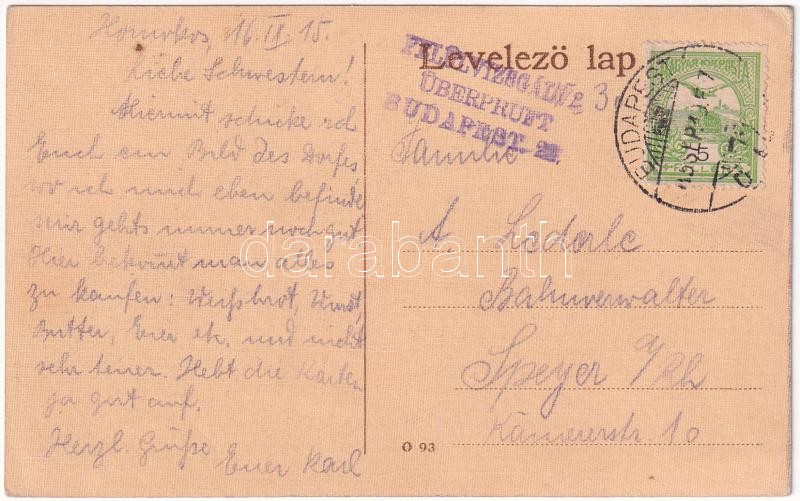 16. II. 15.
Liebe Schwestern!
Hiermit schicke ich
Euch ein Bild des Dorfes,
wo ich mich eben befinde
mir gehts immer noch gut
Hier bekommt man alles
zu kaufen: Weißbrot, Wurst,
Butter, Eier etc. und nicht
sehr teuer. Hebt die Karten
ja gut auf.
Herzl. Grüße
Euer Karl
Levelező lap.
FELÜLVIZSGÁLVA
ÜBERPRÜFT
BUDAPEST
MAGYAR KIR. POSTA
BUDAPEST
Familie
A. Lederle
Bahnverwalter
Speyer a/Rh
Kämmererstr. 10
O 93
darabanth